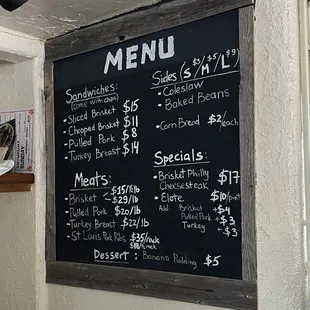 MENU
Sandwiches:
(come with chips)
- Sliced Brisket $15
- Chopped Brisket $11
- Pulled Pork $8
- Turkey Breast $14
Meats:
- Brisket - $15/½ lb
- $29/lb
- Pulled Pork $20/lb
- Turkey Breast $22/lb
- St Louis Pork Ribs $35/rack
Dessert: Banana Pudding $5
Sides (S $3/M $5/L $9)
- Coleslaw
- Baked Beans
- Corn Bread $2/each
Specials:
- Brisket Philly $17
Cheesesteak
- Elote $10/
Add Brisket +$4
Pulled Pork +$3
Turkey +$3